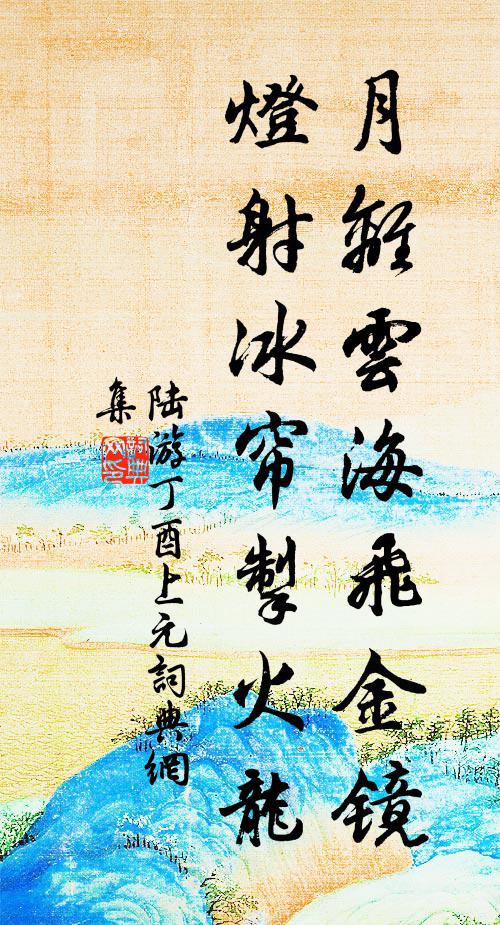 月離雲海飛金鏡
燈射冰帘掣火龍
陆游丁酉上元詞典網
集